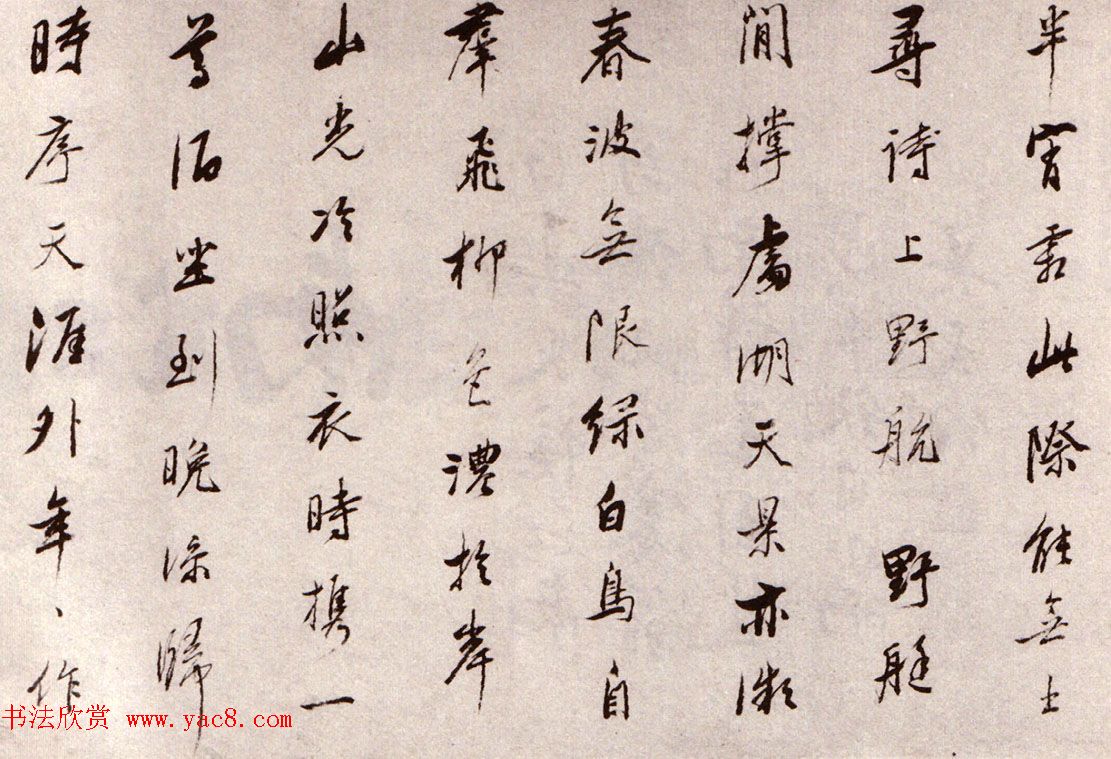 半宵雨此際能無上
尋詩上野航 野艇
閒撐處湖天景亦微
春波無限綠白鳥自
羣飛柳色濃於岸
山光冷照衣時攜一
尊酒坐到晚涼歸
時序天涯外年、作
书法欣赏 www.yac8.com